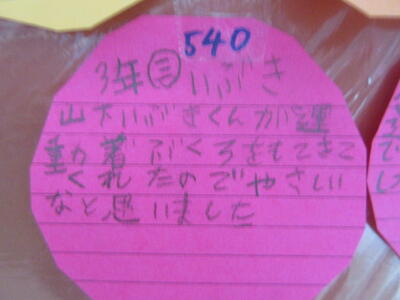 540
3年㊂いぶき
山下いぶきくんが運
動着ぶくろをもてきて
くれたのでやさしい
なと思いました